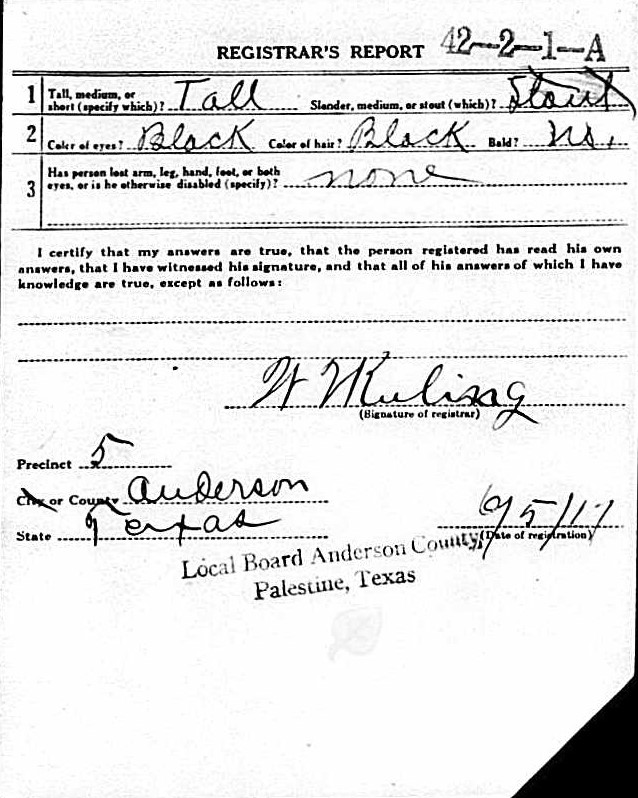 REGISTRAR'S REPORT 42-2-1-A
1 Tall, medium, or short (specify which)? Tall Slender, medium, or stout (which)? Stout
2 Color of eyes? Black Color of hair? Black Bald? no.
3 Has person lost arm, leg, hand, foot, or both
eyes, or is he otherwise disabled (specify)? none
I certify that my answers are true, that the person registered has read his own
answers, that I have witnessed his signature, and that all of his answers of which I have
knowledge are true, except as follows:
(Signature of registrar)
Precinct 5
City or County Anderson
State Texas 6/5/17
(Date of registration)
Local Board Anderson County,
Palestine, Texas